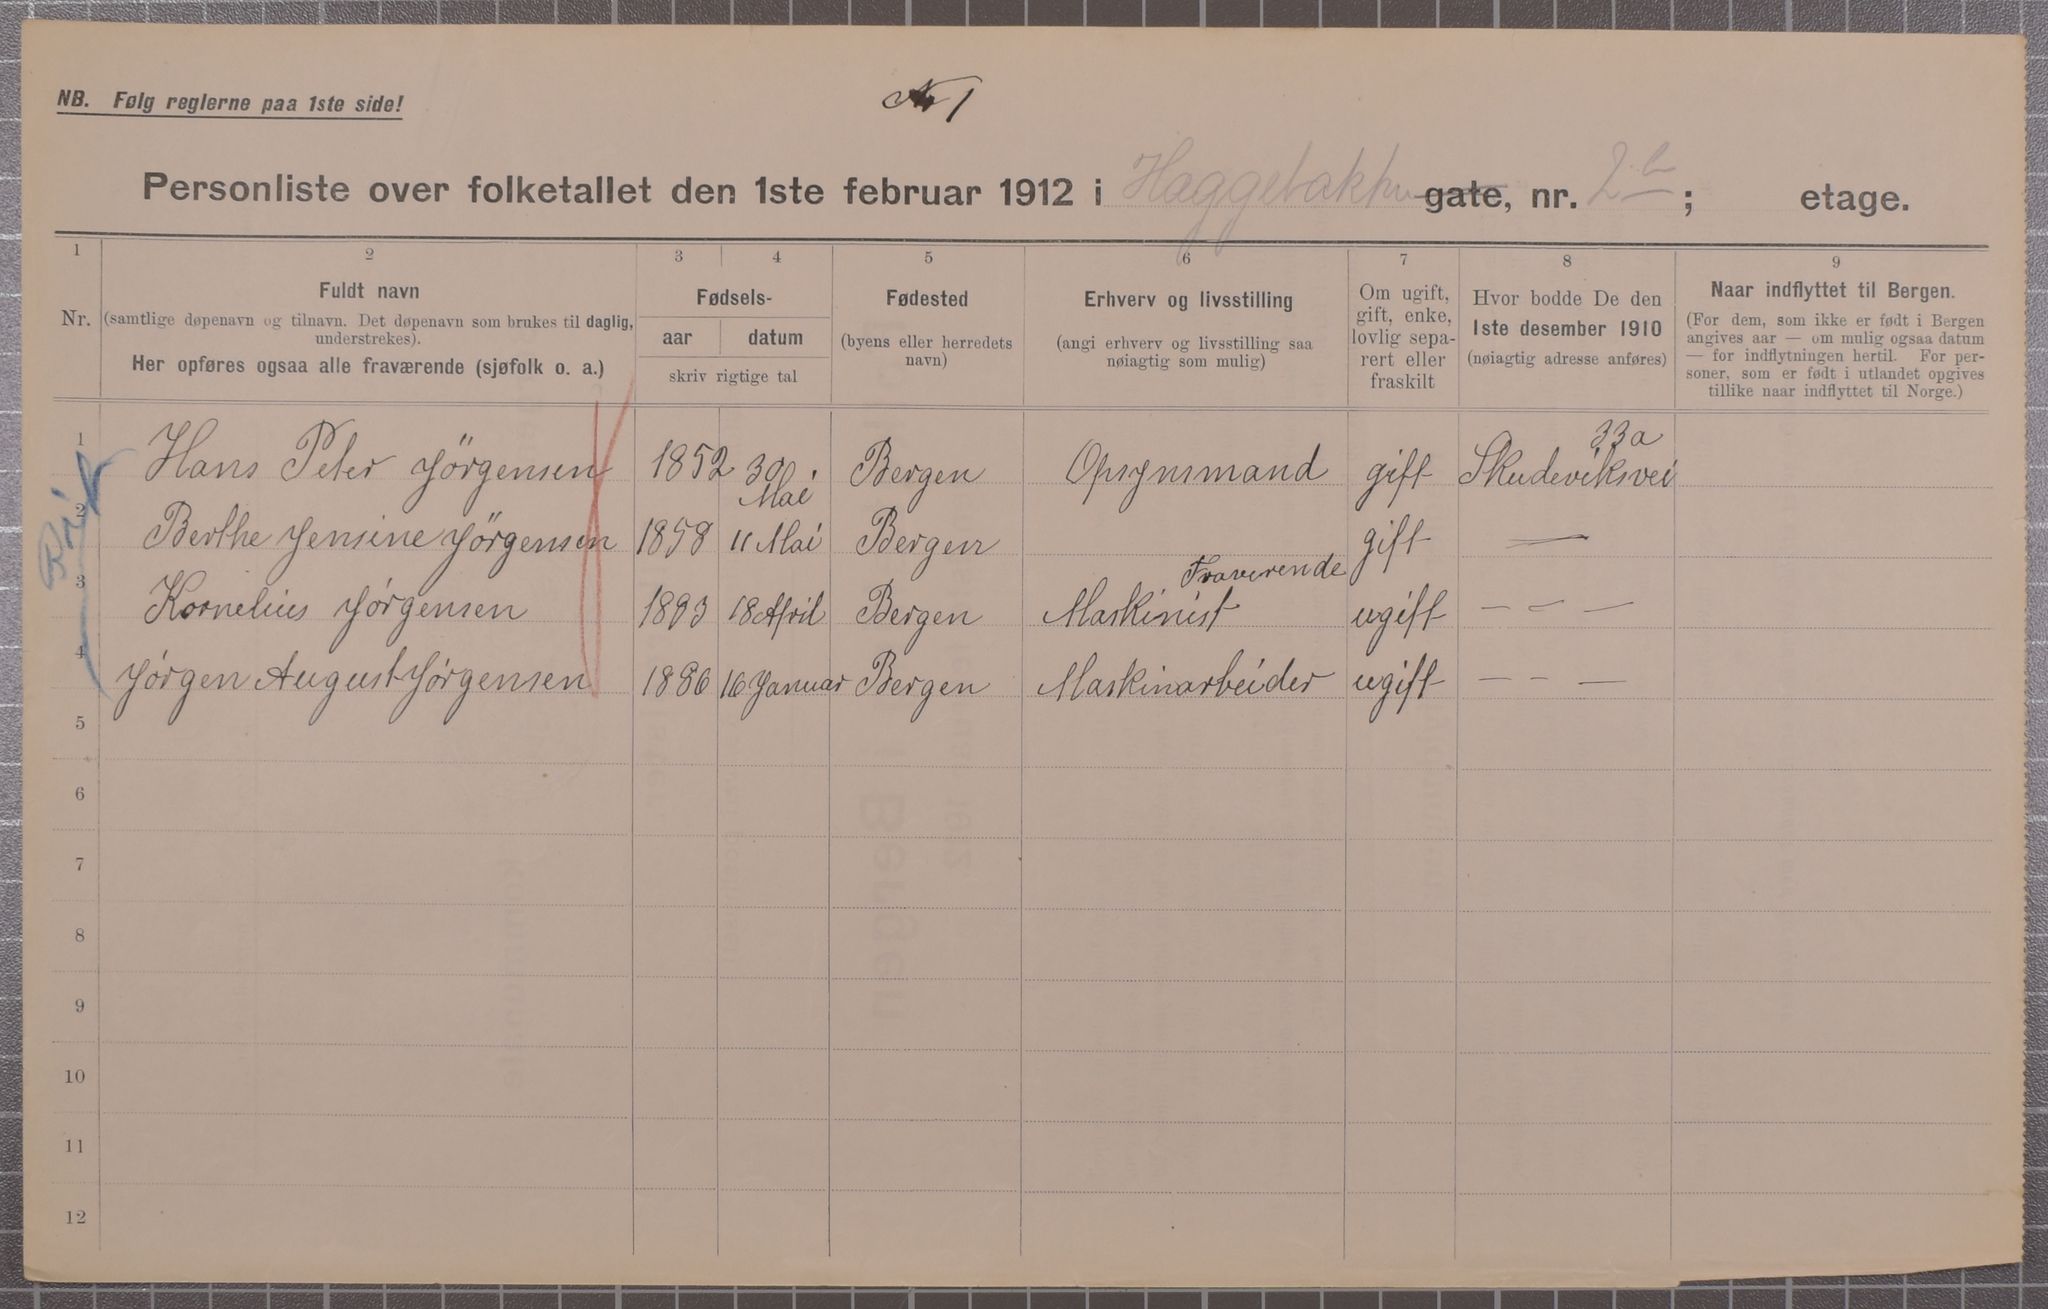 NB. Følg reglerne paa 1ste side!
No 1
Personliste over folketallet den 1ste februar 1912 i Haggebakken gate, nr. 2b ; etage.
1 2 3 4 5 6 7 8 9
Nr.
Fuldt navn
(samtlige døpenavn og tilnavn. Det døpenavn som brukes til daglig, understrekes).
Her opføres ogsaa alle fraværende (sjøfolk o. a.)
Fødsels-
aar datum
skriv rigtige tal
Fødested
(byens eller herredets
navn)
Erhverv og livsstilling
(angi erhverv og livsstilling saa
nøiagtig som mulig)
Om ugift,
gift, enke,
lovlig sepa-
rert eller
fraskilt
Hvor bodde De den
1ste desember 1910
(nøiagtig adresse anføres)
Naar indflyttet til Bergen.
(For dem, som ikke er født i Bergen
angives aar — om mulig ogsaa datum
— for indflytningen hertil. For per-
soner, som er født i utlandet opgives
tillike naar indflyttet til Norge.)
1 Hans Peter Jörgensen 1852 30 Mai Bergen Opsynsmand gift Skudeviksvei 33a
2 Berthe Jensine Jörgensen 1858 11 Mai Bergen gift —
3 Kornelius Jørgensen 1893 18 April Bergen Maskinist Fraverende ugift — – —
4 Jørgen August Jørgensen 1886 16 Januar Bergen Maskinarbeider ugift — – —
5
6
7
8
9
10
11
12